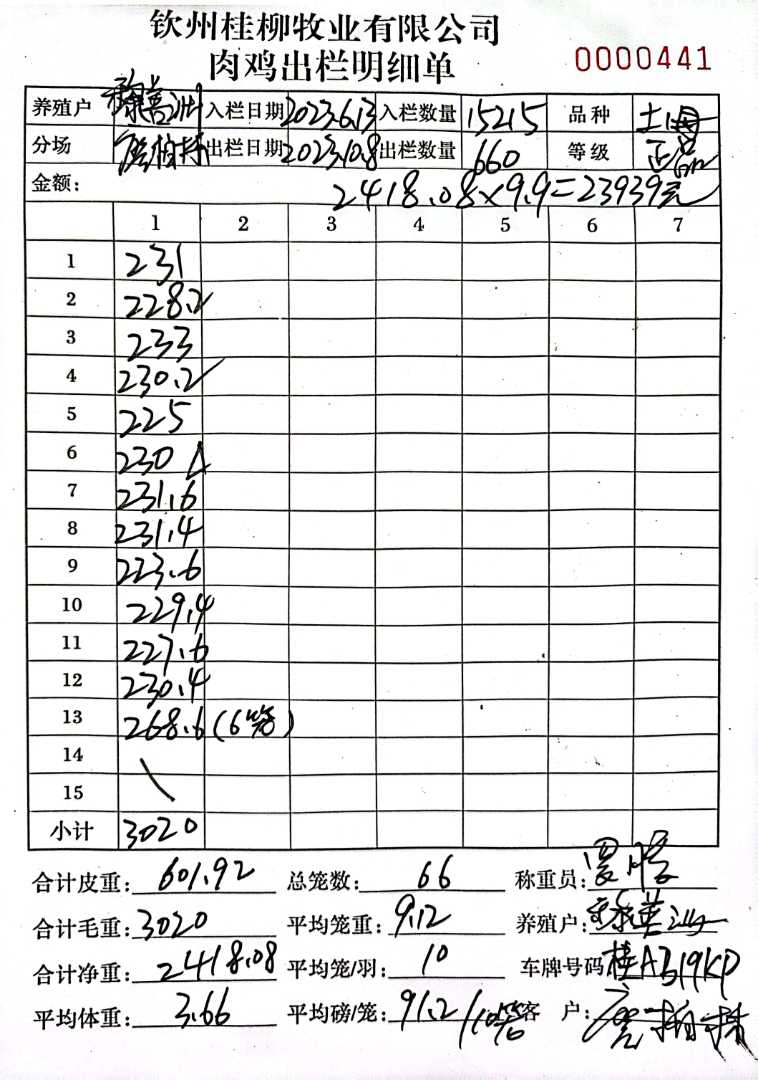 钦州桂柳牧业有限公司
肉鸡出栏明细单 0000441
养殖户 入栏日期 2023.6.13 入栏数量 15215 品种 土
分场 出栏日期 2023.10.8 出栏数量 660 等级 正品
金额: 2418.08×9.9=23939元
1 2 3 4 5 6 7
1 231
2 228.2
3 233
4 230.2
5 225
6 230
7 231.6
8 231.4
9 223.6
10 229.4
11 227.6
12 230.4
13 268.6 (6笼)
14
15
小计 3020
合计皮重: 601.92 总笼数: 66 称重员:
合计毛重: 3020 平均笼重: 9.12 养殖户:
合计净重: 2418.08 平均笼/羽: 10 车牌号码 桂AB19KP
平均体重: 3.66 平均磅/笼: 91.2/10笼 客 户: